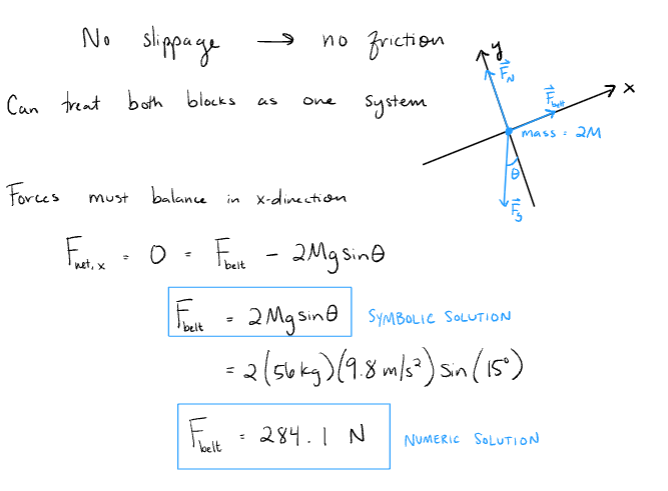 No slippage → no friction
Can treat both blocks as one system
y
F⃗_N
F⃗_belt
x
mass = 2M
θ
F⃗_g
Forces must balance in x-direction
F_net,x = 0 = F_belt - 2Mg sinθ
F_belt = 2Mg sinθ SYMBOLIC SOLUTION
= 2(56kg)(9.8 m/s²) sin(15°)
F_belt = 284.1 N NUMERIC SOLUTION